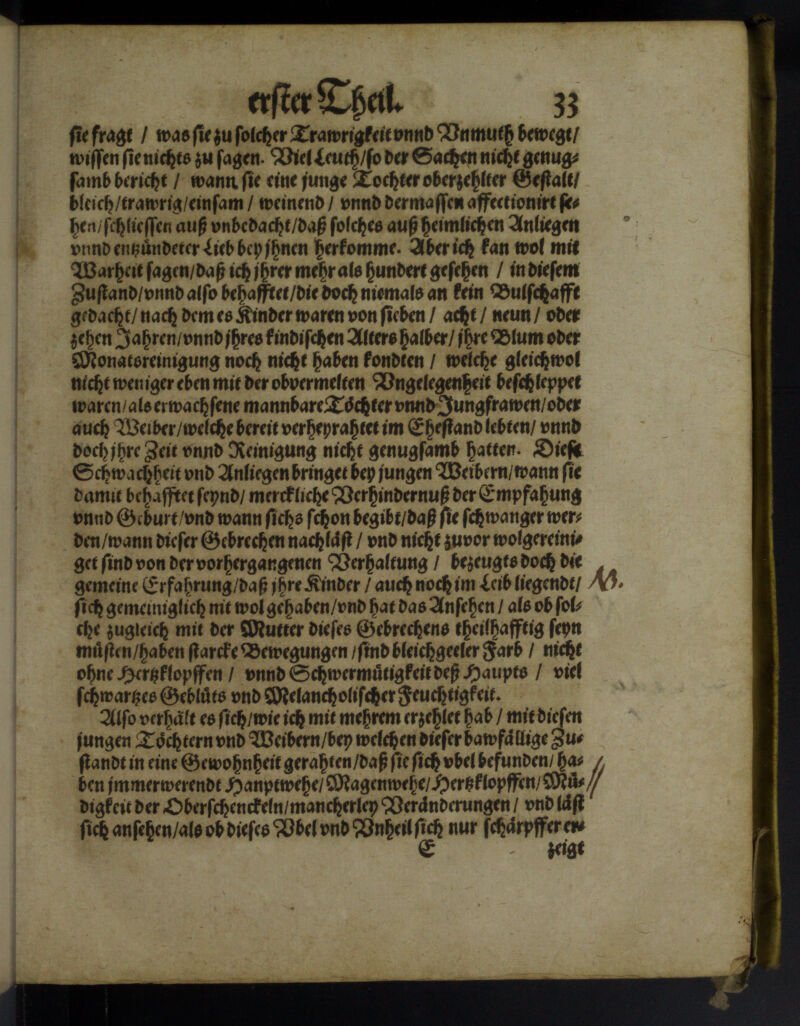 erster Theil. 33
sie fragt / was sie zu solcher Trawrigkeit vnnd Vnmuth bewegt/
wissen sie nichts zu sagen. Viel Leuth/so der Sachen nicht genug⸗
samb bericht / wann sie eine junge Tochter oberzehlter Gestalt/
bleich/trawrig/einsam / weinend / vnnd dermassen affectionirt se⸗
hen/schliessen auß vnbedacht/daß solches auß heimlichen Anliegen
vnnd enzündeter Lieb bey jhnen herkomme. Aber ich kan wol mit
Warheit sagen/daß ich jhrer mehr als hundert gesehen / in diesem
Zustand/vnnd also behafftet/die doch niemals an kein Bulschafft
gedacht/ nach dem es Kinder waren von sieben / acht / neun / oder
zehen Jahren/vnnd jhres kindischen Alters halber/ jhre Blum oder
Monatsreinigung noch nicht haben kondten / welche gleichwol
nicht weniger eben mit der obvermelten Vngelegenheit beschleppet
waren/als erwachsene mannbare Töchter vnnd Jungfrawen/oder
auch Weiber/welche bereit verheyrahtet im Ehestand lebten/ vnnd
doch jhre Zeit vnnd Reinigung nicht genugsamb hatten. Diese
Schwachheit vnd Anliegen bringet bey jungen Weibern/wann sie
damit behafftet seynd/ mercklicke Verhindernuß der Empfahung
vnnd Geburt/vnd wann sichs schon begibt/daß sie schwanger wer⸗
den/wann dieser Gebrechen nachläst / vnd nicht zuvor wolgereini⸗
get sind von der vorhergangenen Verhaltung / bezeugts doch die
gemeine Erfahrung/daß jhre Kinder / auch noch im Leib liegendt/
sich gemeiniglich nit wol gehaben/vnd hat das Ansehen / als ob sol⸗
che zugleich mit der Mutter dieses Gebrechens theilhafftig seyn
müsten/haben starcke Bewegungen /sind bleichgeeler Farb / nicht
ohne Hertzklopffen / vnnd Schwermütigkeit deß Haupts / viel
schwartzes Geblüts vnd Melancholischer Feuchtigkeit.
Also verhält es sich/wie ich mit mehrem erzehlet hab / mit diesen
jungen Töchtern vnd Weibern/bey welchen dieser bawfällige Zu⸗
standt in eine Gewohnheit gerahten/daß sie sich vbel befunden/ ha⸗
ben jmmerwerendt Hauptwehe/Magenwehe/Hertzklopffen/Mü⸗
digkeit der Oberschenckeln/mancherley Veränderungen / vnd läst
sich ansehen/als ob dieses Vbel vnd Vnheil sich nur schärpffer er⸗
E zeigt